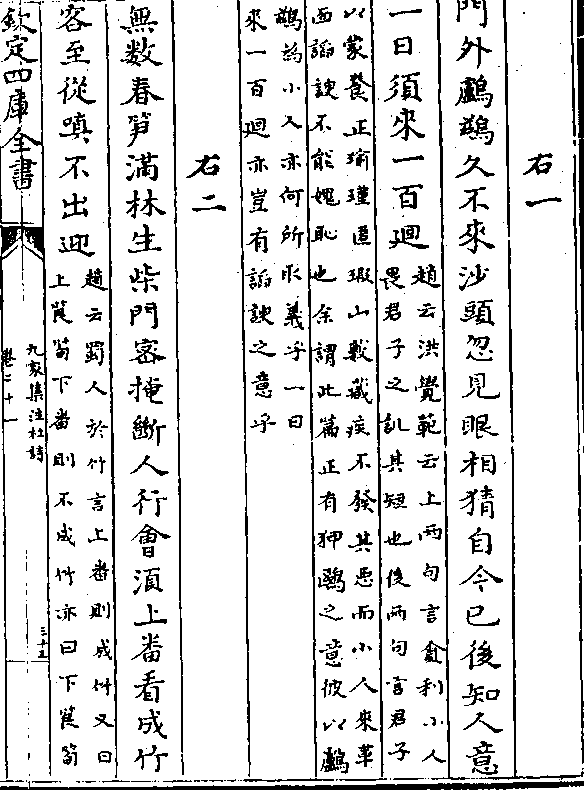 右一
門外鸕鷀久不來沙頭忽見眼相猜自今已後知人意
一日須來一百廻
趙云洪覺範云上兩句言貪利小人
畏君子之訕其短也後兩句言君子
以蒙養正瑜瑾匿瑕山藪藏疾不發其惡而小人來革
面謟諛不能愧恥也余謂此篇正有狎鷗之意彼以鸕
鷀為小人亦何所取義乎一日
來一百廻亦豈有謟諛之意乎
右二
無數春笋滿林生柴門密掩斷人行會須上番看成竹
客至從嗔不出迎
趙云蜀人於竹言上番則成竹又曰
上筤笋下番則不成竹亦曰下筤笋
欽定四庫全書
九家集注杜詩
卷二十一
三十五